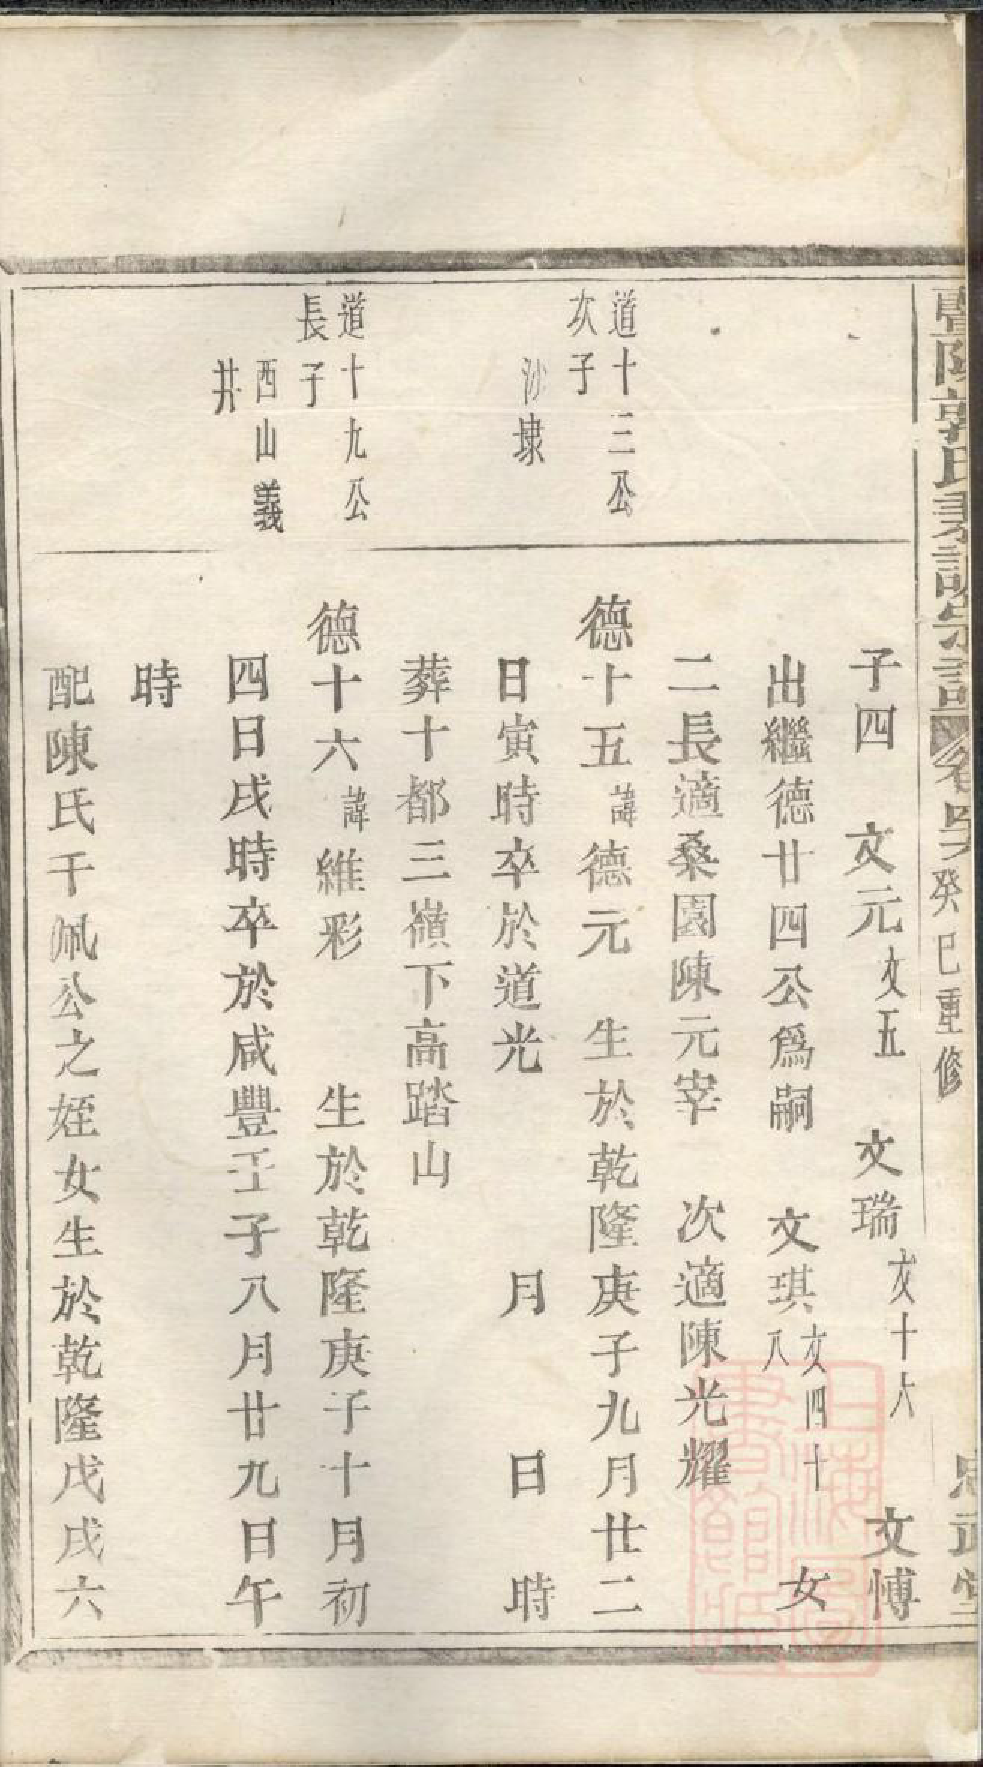 暨陽郭氏素話宗譜 卷 癸巳重修 忠武堂
子四 文元 文五 文瑞 文十六 文博
出繼德廿四公為嗣 文琪 文四十八 女
二長適桑園陳元宰 次適陳光耀
道十三公次子
德十五 諱 德元 生於乾隆庚子九月廿二
沙埭
日寅時卒於道光 月 日 時
葬十都三嶺下高踏山
道十九公長子
德十六 諱 維彩 生於乾隆庚子十月初
西山義井
四日戌時卒於咸豐壬子八月廿九日午
時
配陳氏干佩公之姪女生於乾隆戊戌六
上海圖書館藏